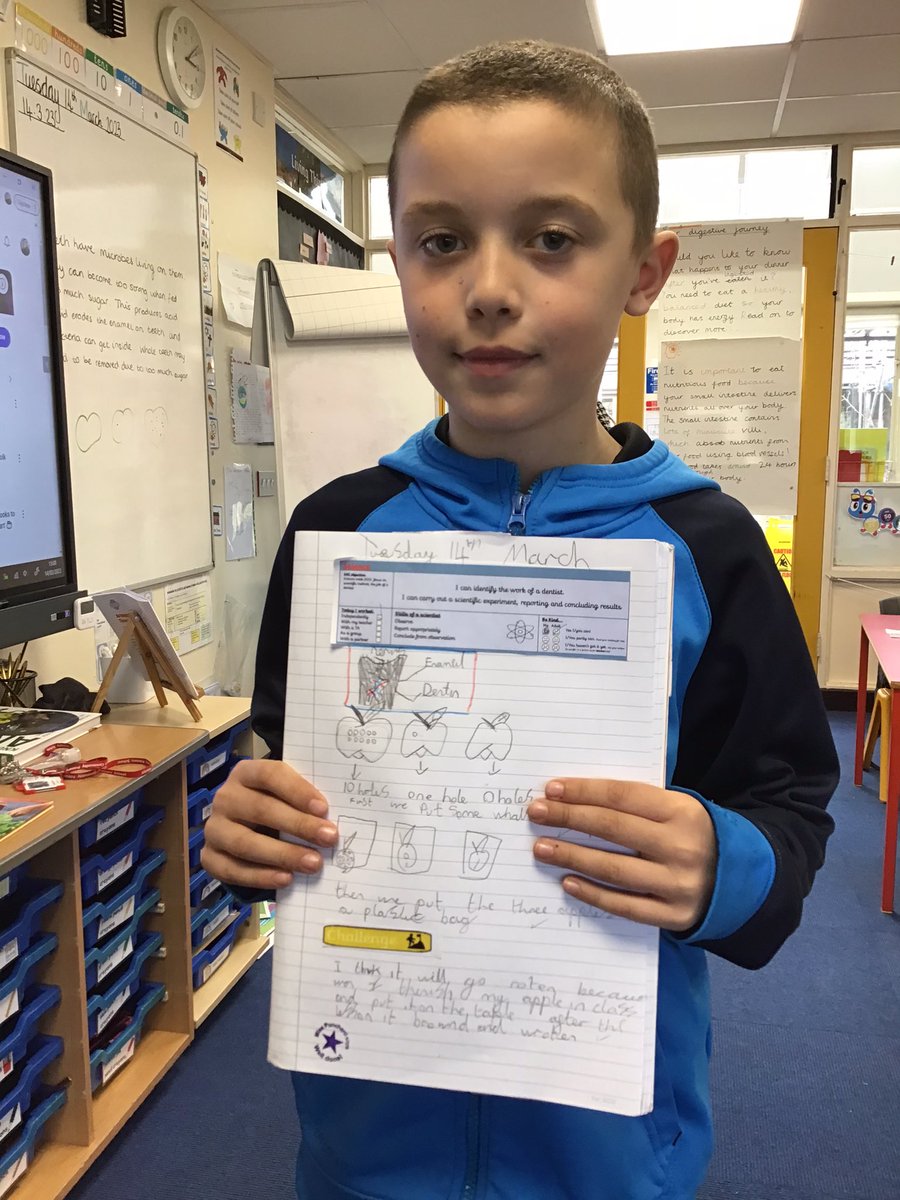 1000 hundreds 100 tens 10 ones 1 0.1
Tuesday 14th March 2023
14.3.23
eth have microbes living on them.
y can become too strong when fed
s much sugar. This produces acid
and erodes the enamel on teeth and
cteria can get inside. Whole teeth may
d to be removed due to too much sugar
digestive journey
ould you like to know
what happens to your dinner
after you've eaten it?
You need to eat a healthy,
balanced diet so your
body has energy. Read on to
discover more!
It is important to eat
nutritious food because
your small intestine delivers
nutrients all over your body.
The small intestine contains
lots of villi,
which absorb nutrients from
food using blood vessels!
24 hours
body.
CAUTION
Tuesday 14th March
I can identify the work of a dentist.
I can carry out a scientific experiment, reporting and concluding results
Today I worked:
Independently
With my teacher
With a TA
As a group
With a partner
Skills of a scientist
Observe
Report appropriately
Conclude from observation
Be Kind...
My Adult
Yes! (you can)
Enamel
Dentin
10 holes one hole 0 holes
First we put some
then we put the three apples
a plastic bag
Challenge
I think it will go roten because
my apple in class
and put it on the table after that
when it brownd and
Well done!